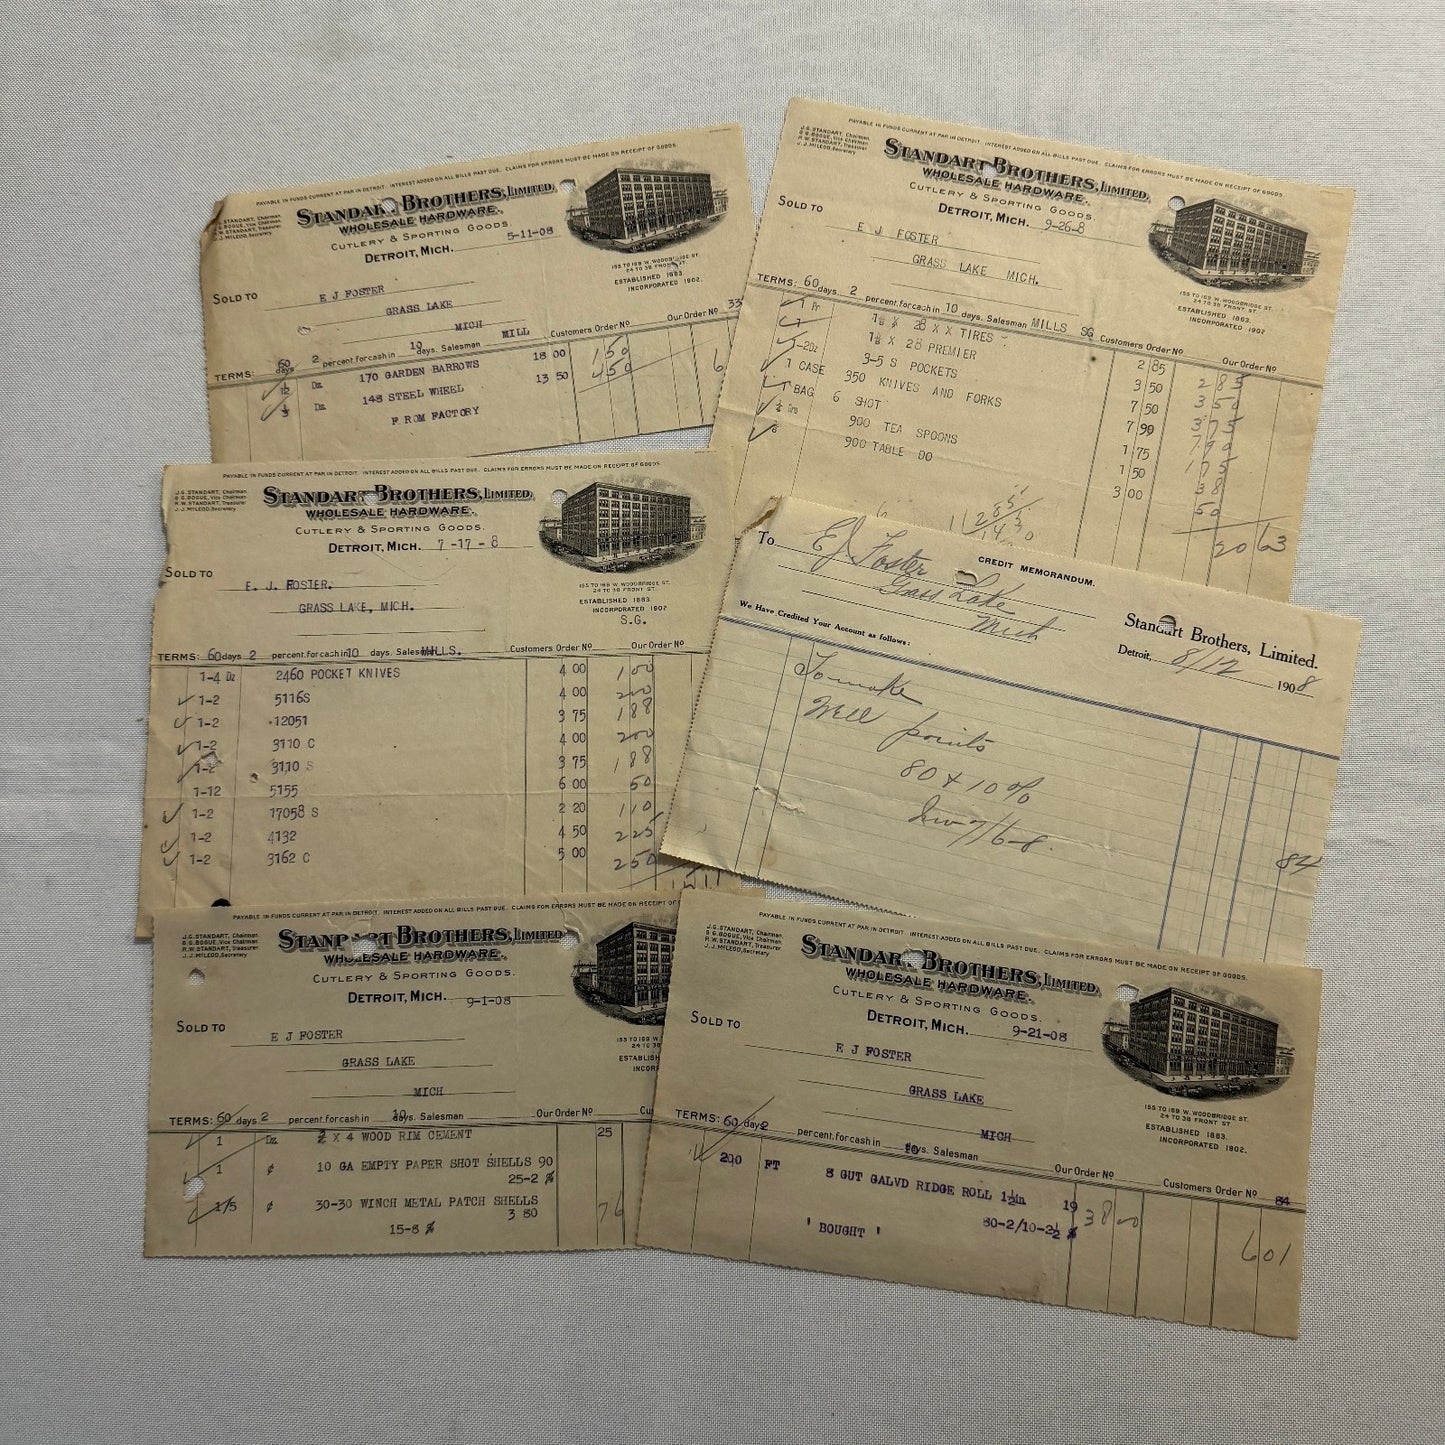 PAYABLE IN FUNDS CURRENT AT PAR IN DETROIT. INTEREST ADDED ON ALL BILLS PAST DUE. CLAIMS FOR ERRORS MUST BE MADE ON RECEIPT OF GOODS.
STANDART, Chairman.
BOGUE, Vice Chairman
R.W. STANDART, Treasurer
J. J. McLEOD, Secretary
STANDAR BROTHERS, LIMITED,
WHOLESALE HARDWARE.
CUTLERY & SPORTING GOODS.
DETROIT, MICH. 5-11-08
155 TO 169 W. WOODBRIDGE ST.
24 TO 38 FRONT ST.
ESTABLISHED 1863.
INCORPORATED 1902.
SOLD TO E J FOSTER
GRASS LAKE
MICH
TERMS: 60 days 2 percent. for cash in 10 days. Salesman MILL Customers Order No Our Order No 33
1/12 Dz 170 GARDEN BARROWS 18 00 150 6
1/3 Dz 148 STEEL WHEEL 13 50 450
F ROM FACTORY
PAYABLE IN FUNDS CURRENT AT PAR IN DETROIT. INTEREST ADDED ON ALL BILLS PAST DUE. CLAIMS FOR ERRORS MUST BE MADE ON RECEIPT OF GOODS
J.G. STANDART, Chairman
G G. BOGUE, Vice Chairman
R.W. STANDART, Treasurer
J. J. McLEOD, Secretary
STANDART BROTHERS, LIMITED,
WHOLESALE HARDWARE.
CUTLERY & SPORTING GOODS.
DETROIT, MICH. 9-26-8
155 TO 169 W. WOODBRIDGE ST.
24 TO 38 FRONT ST.
ESTABLISHED 1863.
INCORPORATED 1902
SOLD TO
E J FOSTER
GRASS LAKE MICH.
TERMS: 60 days. 2 percent. for cash in 10 days. Salesman MILLS SG Customers Order No Our Order No
1 Pr 28 X X TIRES 2 85 285
28 PREMIER 3 50 350
-2Dz 3-5 S POCKETS 7 50 375
1 CASE 350 KNIVES AND FORKS 7 99
1 BAG 6 SHOT 1 75 175
900 TEA SPOONS 1 50
900 TABLE DO 3 00 50
20 63
PAYABLE IN FUNDS CURRENT AT PAR IN DETROIT. INTEREST ADDED ON ALL BILLS PAST DUE. CLAIMS FOR ERRORS MUST BE MADE ON RECEIPT OF GOODS.
J.G. STANDART, Chairman.
G G. BOGUE, Vice Chairman
R.W. STANDART, Treasurer
J. J. McLEOD, Secretary
STANDART BROTHERS, LIMITED,
WHOLESALE HARDWARE.
CUTLERY & SPORTING GOODS.
DETROIT, MICH. 7-17-8
155 TO 169 W. WOODBRIDGE ST
24 TO 38 FRONT ST.
ESTABLISHED 1863.
INCORPORATED 1902
S.G.
SOLD TO
E. J. FOSTER.
GRASS LAKE, MICH.
TERMS: 60 days 2 percent. for cash in 10 days. Salesman MILLS. Customers Order No Our Order No
1-4 Dz 2460 POCKET KNIVES 4 00 100
1-2 5116S 4 00 200
1-2 12051 3 75 188
1-2 3110 C 4 00 200
1-2 3110 S 3 75 188
1-12 5155 6 00 50
1-2 17058 S 2 20 110
1-2 4132 4 50 225
1-2 3162 C 5 00 250
To E J Foster
Grass Lake
Mich
CREDIT MEMORANDUM.
Standart Brothers, Limited.
Detroit, 8/12 1908
We Have Credited Your Account as follows:
To make
Well points
80 & 10%
Inv 7/16-8.
84
PAYABLE IN FUNDS CURRENT AT PAR IN DETROIT. INTEREST ADDED ON ALL BILLS PAST DUE. CLAIMS FOR ERRORS MUST BE MADE ON RECEIPT OF
J.G. STANDART, Chairman.
G G. BOGUE, Vice Chairman
R.W. STANDART, Treasurer
J. J. McLEOD, Secretary
STANDART BROTHERS, LIMITED
WHOLESALE HARDWARE.
CUTLERY & SPORTING GOODS.
DETROIT, MICH. 9-1-08
155 TO 169 W
24 TO 38
ESTABLISH
INCOR
SOLD TO
E J FOSTER
GRASS LAKE
MICH
TERMS: 60 days 2 percent. for cash in 10 days. Salesman Our Order No Cu
1 Dz 2 X 4 WOOD RIM CEMENT 25
1 ¢ 10 GA EMPTY PAPER SHOT SHELLS 90
25-2 %
1/5 ¢ 30-30 WINCH METAL PATCH SHELLS 76
3 80
15-8 %
PAYABLE IN FUNDS CURRENT AT PAR IN DETROIT. INTEREST ADDED ON ALL BILLS PAST DUE. CLAIMS FOR ERRORS MUST BE MADE ON RECEIPT OF GOODS.
J.G. STANDART, Chairman.
G G. BOGUE, Vice Chairman
R.W. STANDART, Treasurer
J. J. McLEOD, Secretary
STANDART BROTHERS, LIMITED,
WHOLESALE HARDWARE.
CUTLERY & SPORTING GOODS.
DETROIT, MICH. 9-21-08
155 TO 169 W. WOODBRIDGE ST.
24 TO 38 FRONT ST
ESTABLISHED 1863.
INCORPORATED 1902.
SOLD TO
E J FOSTER
GRASS LAKE
MICH
TERMS: 60 days 2 percent. for cash in 10 days. Salesman Our Order No Customers Order No 84
200 FT 8 GUT GALVD RIDGE ROLL 1½in 19 38 00
80-2/10-2½ %
' BOUGHT ' 601